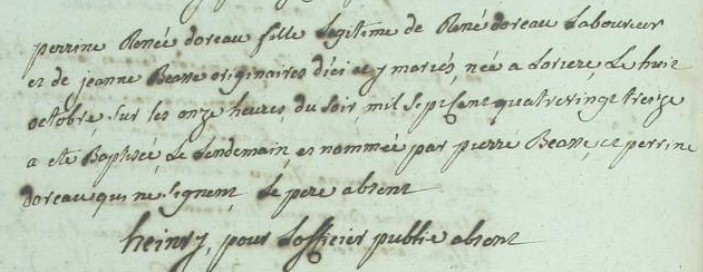 perrine Renée doreau fille legitime de René doreau Laboureur
et de jeanne Beasse originaires d'ici et y mariés, née a Loriere, Le huit
octobre, sur les onze heures, du soir, mil sept cent quatrevingt treize
a ete Baptisée, Le Lendemain, et nommée par pierre Beasse, et perrine
doreau qui ne signent, Le pere absent
heinry, pour L'officier public absent